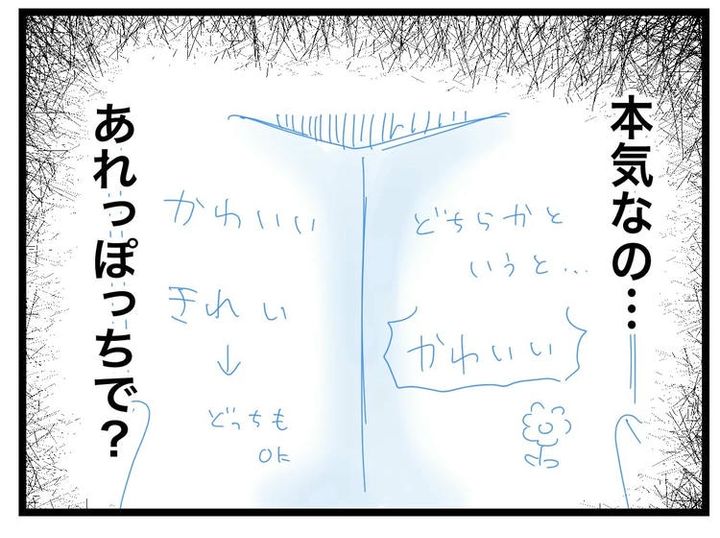 本気なの…
どちらかと
いうと…
かわいい
かわいい
きれい
↓
どっちも
OK
あれっぽっちで？